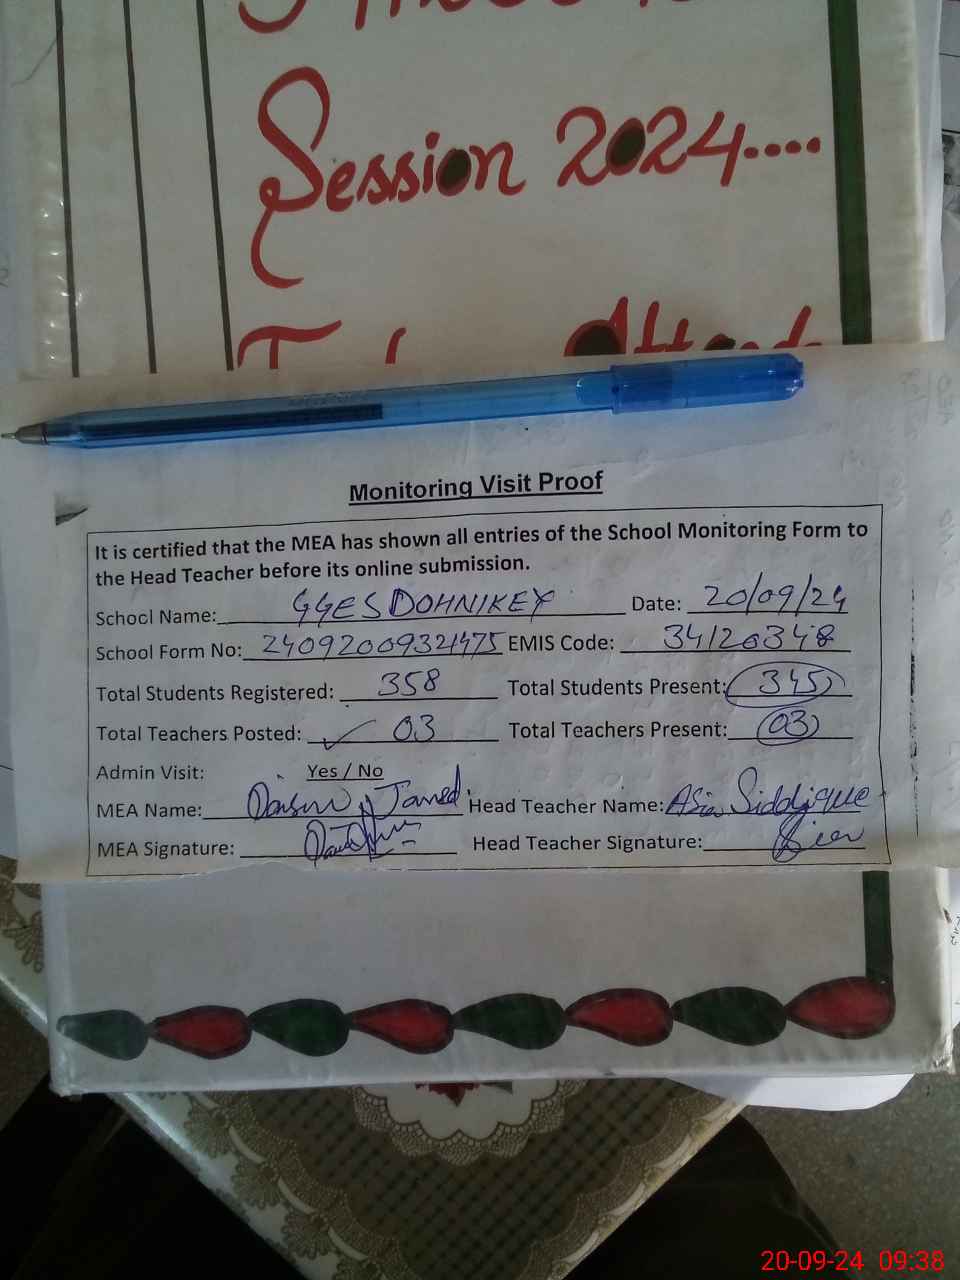 Session 2024....
Monitoring Visit Proof
It is certified that the MEA has shown all entries of the School Monitoring Form to
the Head Teacher before its online submission.
School Name: GGES DOHNIKEY Date: 20/09/24
School Form No: 24092009321475 EMIS Code: 34120348
Total Students Registered: 358 Total Students Present: 345
Total Teachers Posted: 03 Total Teachers Present: 03
Admin Visit: Yes / No
MEA Name: Javed Head Teacher Name: Asia Siddique
MEA Signature: Head Teacher Signature:
20-09-24 09:38